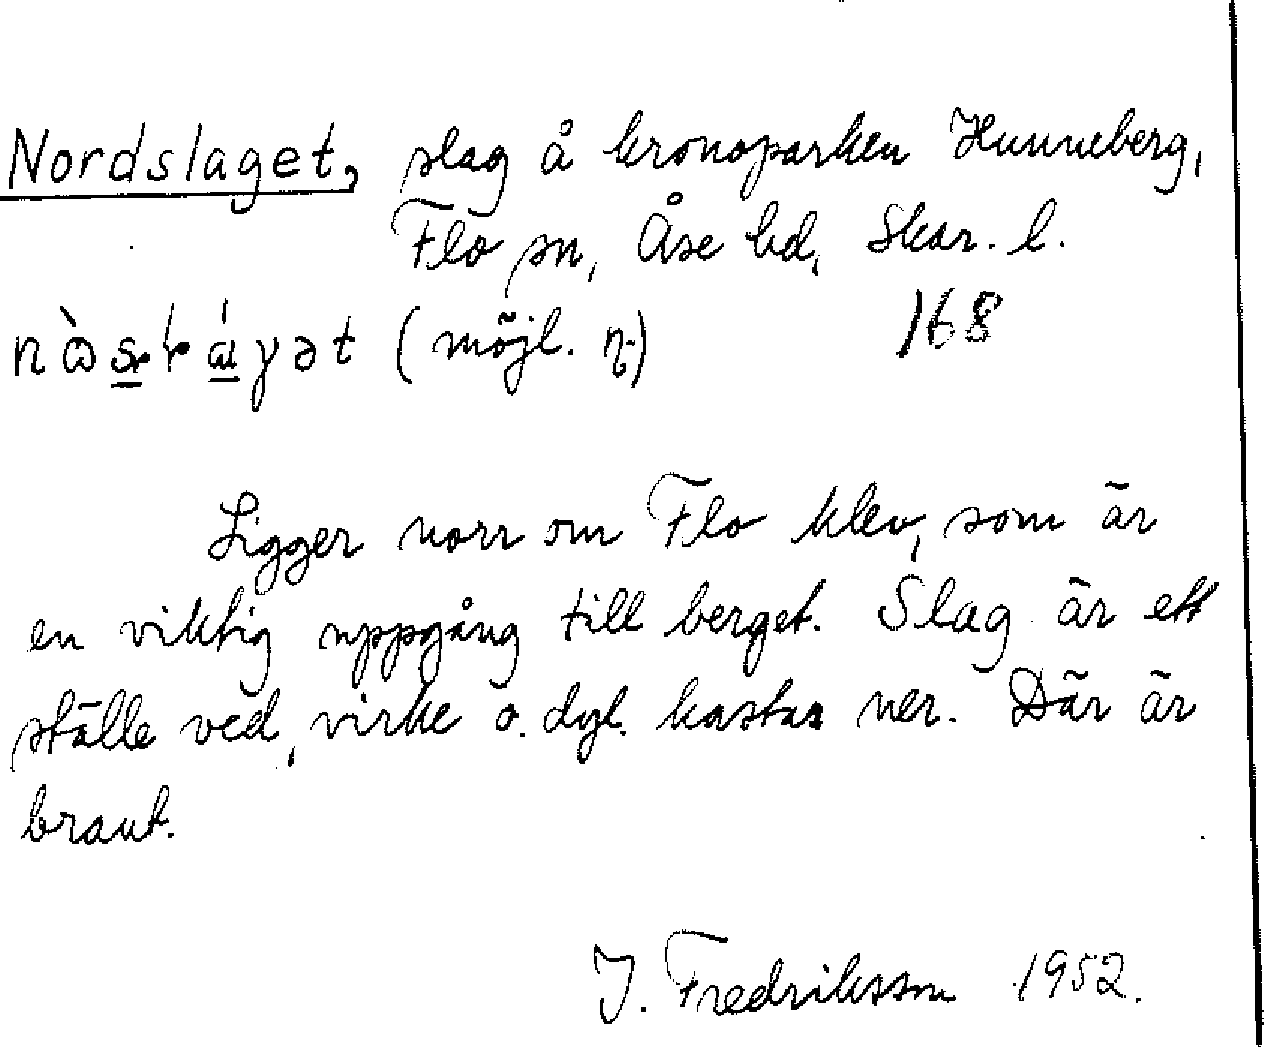 Nordslaget, slag å kronoparken Hunneberg,
Flo sn, Åse hd, Skar. l.
(möjl. ) 168
Ligger norr om Flo klev, som är
en viktig uppgång till berget. Slag är ett
ställe ved, virke o. dyl. kastas ner. Där är
brant.
J. Fredriksson 1952.